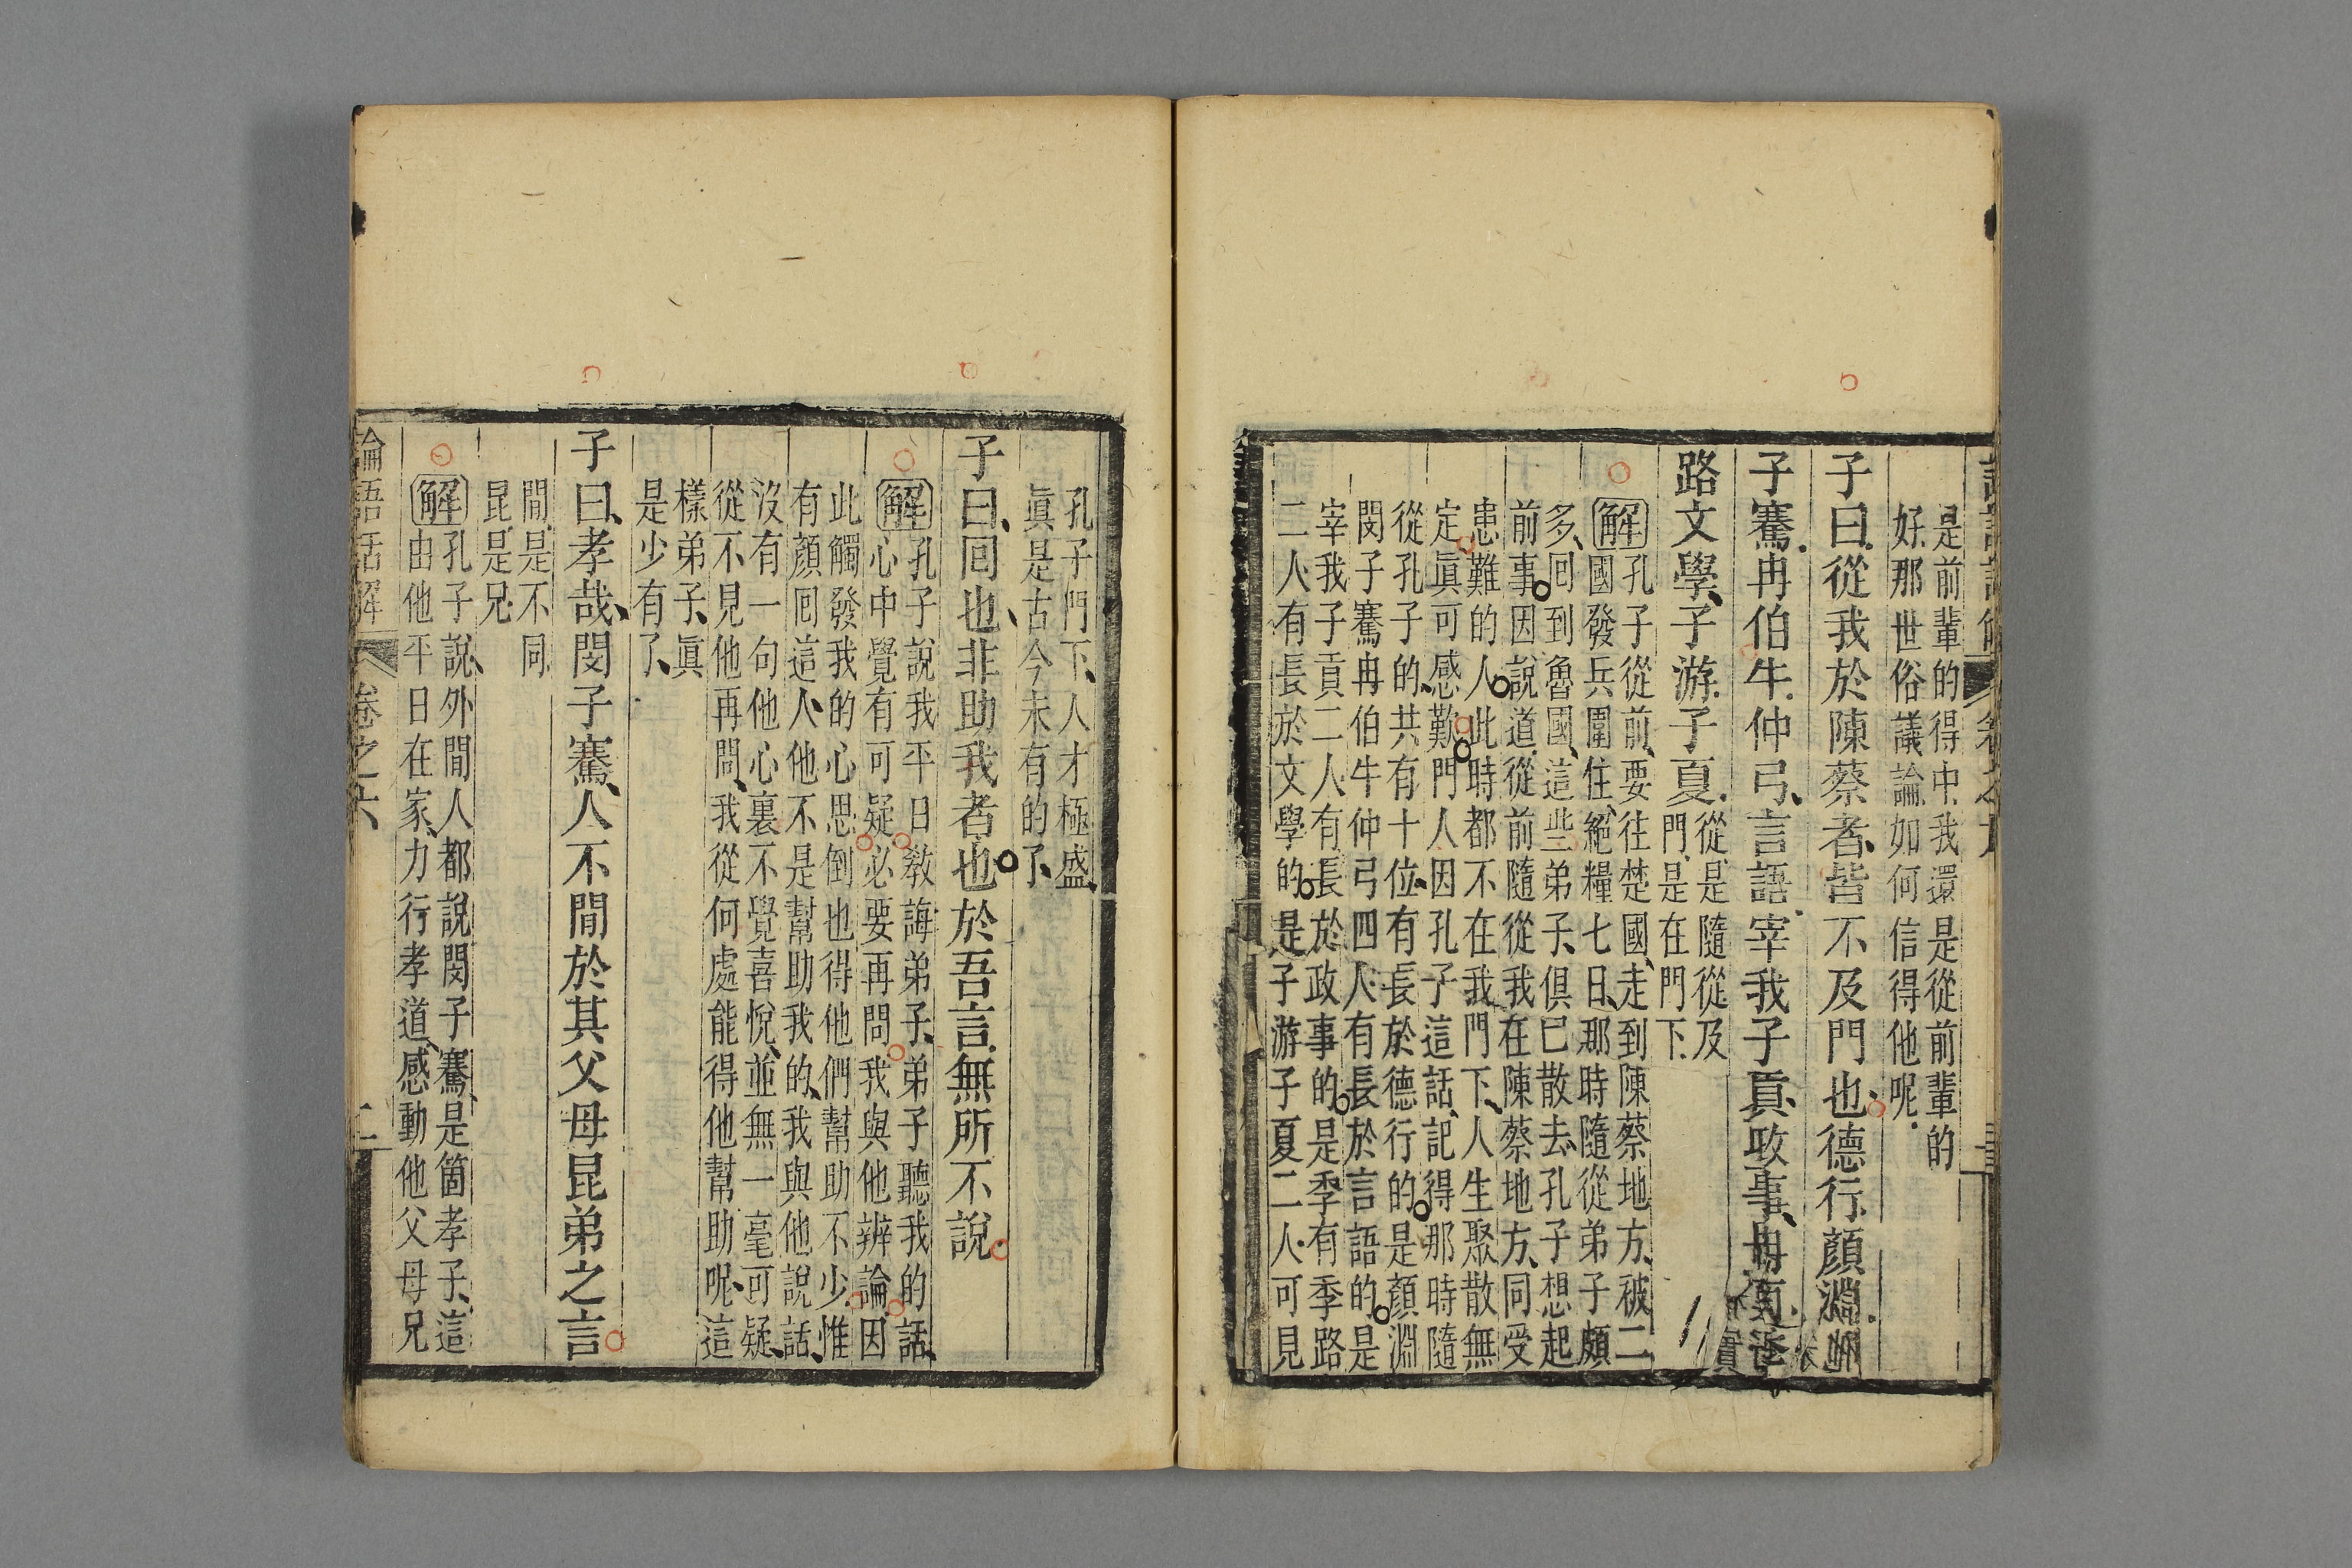 是前輩的得中、我還是從前輩的
好、那世俗議論、如何信得他呢、
子曰、從我於陳蔡者、皆不及門也、德行、顏淵、閔
子騫、冉伯牛、仲弓、言語、宰我、子貢、政事、冉有、季
路、文學、子游、子夏、
從、是隨從、及
門、是在門下、
解
孔子從前、要往楚國、走到陳蔡地方、被二
國發兵圍住、絕糧七日、那時隨從弟子頗
多、囘到魯國、這些弟子、俱已散去、孔子想起
前事、因說道、從前隨從我在陳蔡地方、同受
患難的人、此時都不在我門下、人生聚散無
定、眞可感歎、門人因孔子這話、記得那時隨
從孔子的、共有十位、有長於德行的、是顏淵
閔子騫冉伯牛仲弓四人、有長於言語的、是
宰我子貢二人、有長於政事的、是季有季路
二人、有長於文學的、是子游子夏二人、可見
孔子門下、人才極盛、
眞是古今未有的了、
子曰、囘也、非助我者也、於吾言、無所不說、
解
孔子說、我平日教誨弟子、弟子聽我的話、
心中覺有可疑、必要再問、我與他辨論、因
此觸發我的心思、倒也得他們幫助不少、惟
有顏囘這人、他不是幫助我的、我與他說話、
沒有一句他心裏不覺喜悅、並無一毫可疑、
從不見他再問、我從何處能得他幫助呢、這
樣弟子、眞
是少有了、
子曰、孝哉、閔子騫、人不閒於其父母昆弟之言
閒、是不同
昆、是兄、
解
孔子說、外間人都說閔子騫、是箇孝子、這
由他平日在家、力行孝道、感動他父母兄
論語話解
卷之六
二